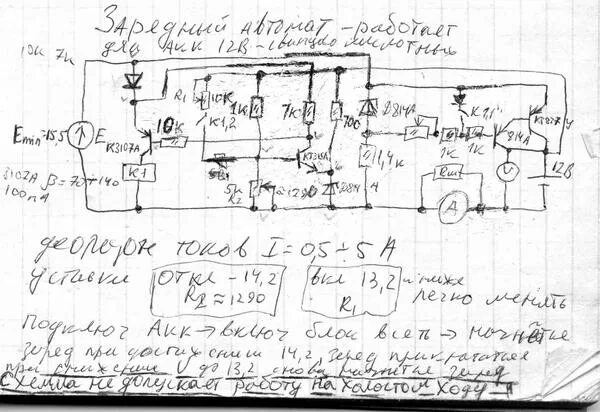 Зарядный автомат - работает
для Акк 12В - свинцово кислотных
10к 7к
R1 10к
К1,2
1к
7к
700
Д814А
К1,1
КТ827
Emin=15,5
E
КТ3107А
10к
КТ315
814А
1к
1к
У
3102А β=70÷140
100мА
К1
5к
R2
≈1290
Д814
1,4к
Rш
А
V
12В
диапазон токов I=0,5÷5 А
уставки
откл - 14,2
R2≈1290
вкл 13,2
R1
и ниже
легко менять
Подключ Акк → включ блок в сеть → начнётся
заряд при достижении 14,2, заряд прекратится
при снижении U до 13,2 снова начнётся заряд
Схема не допускает работу на холостом ходу